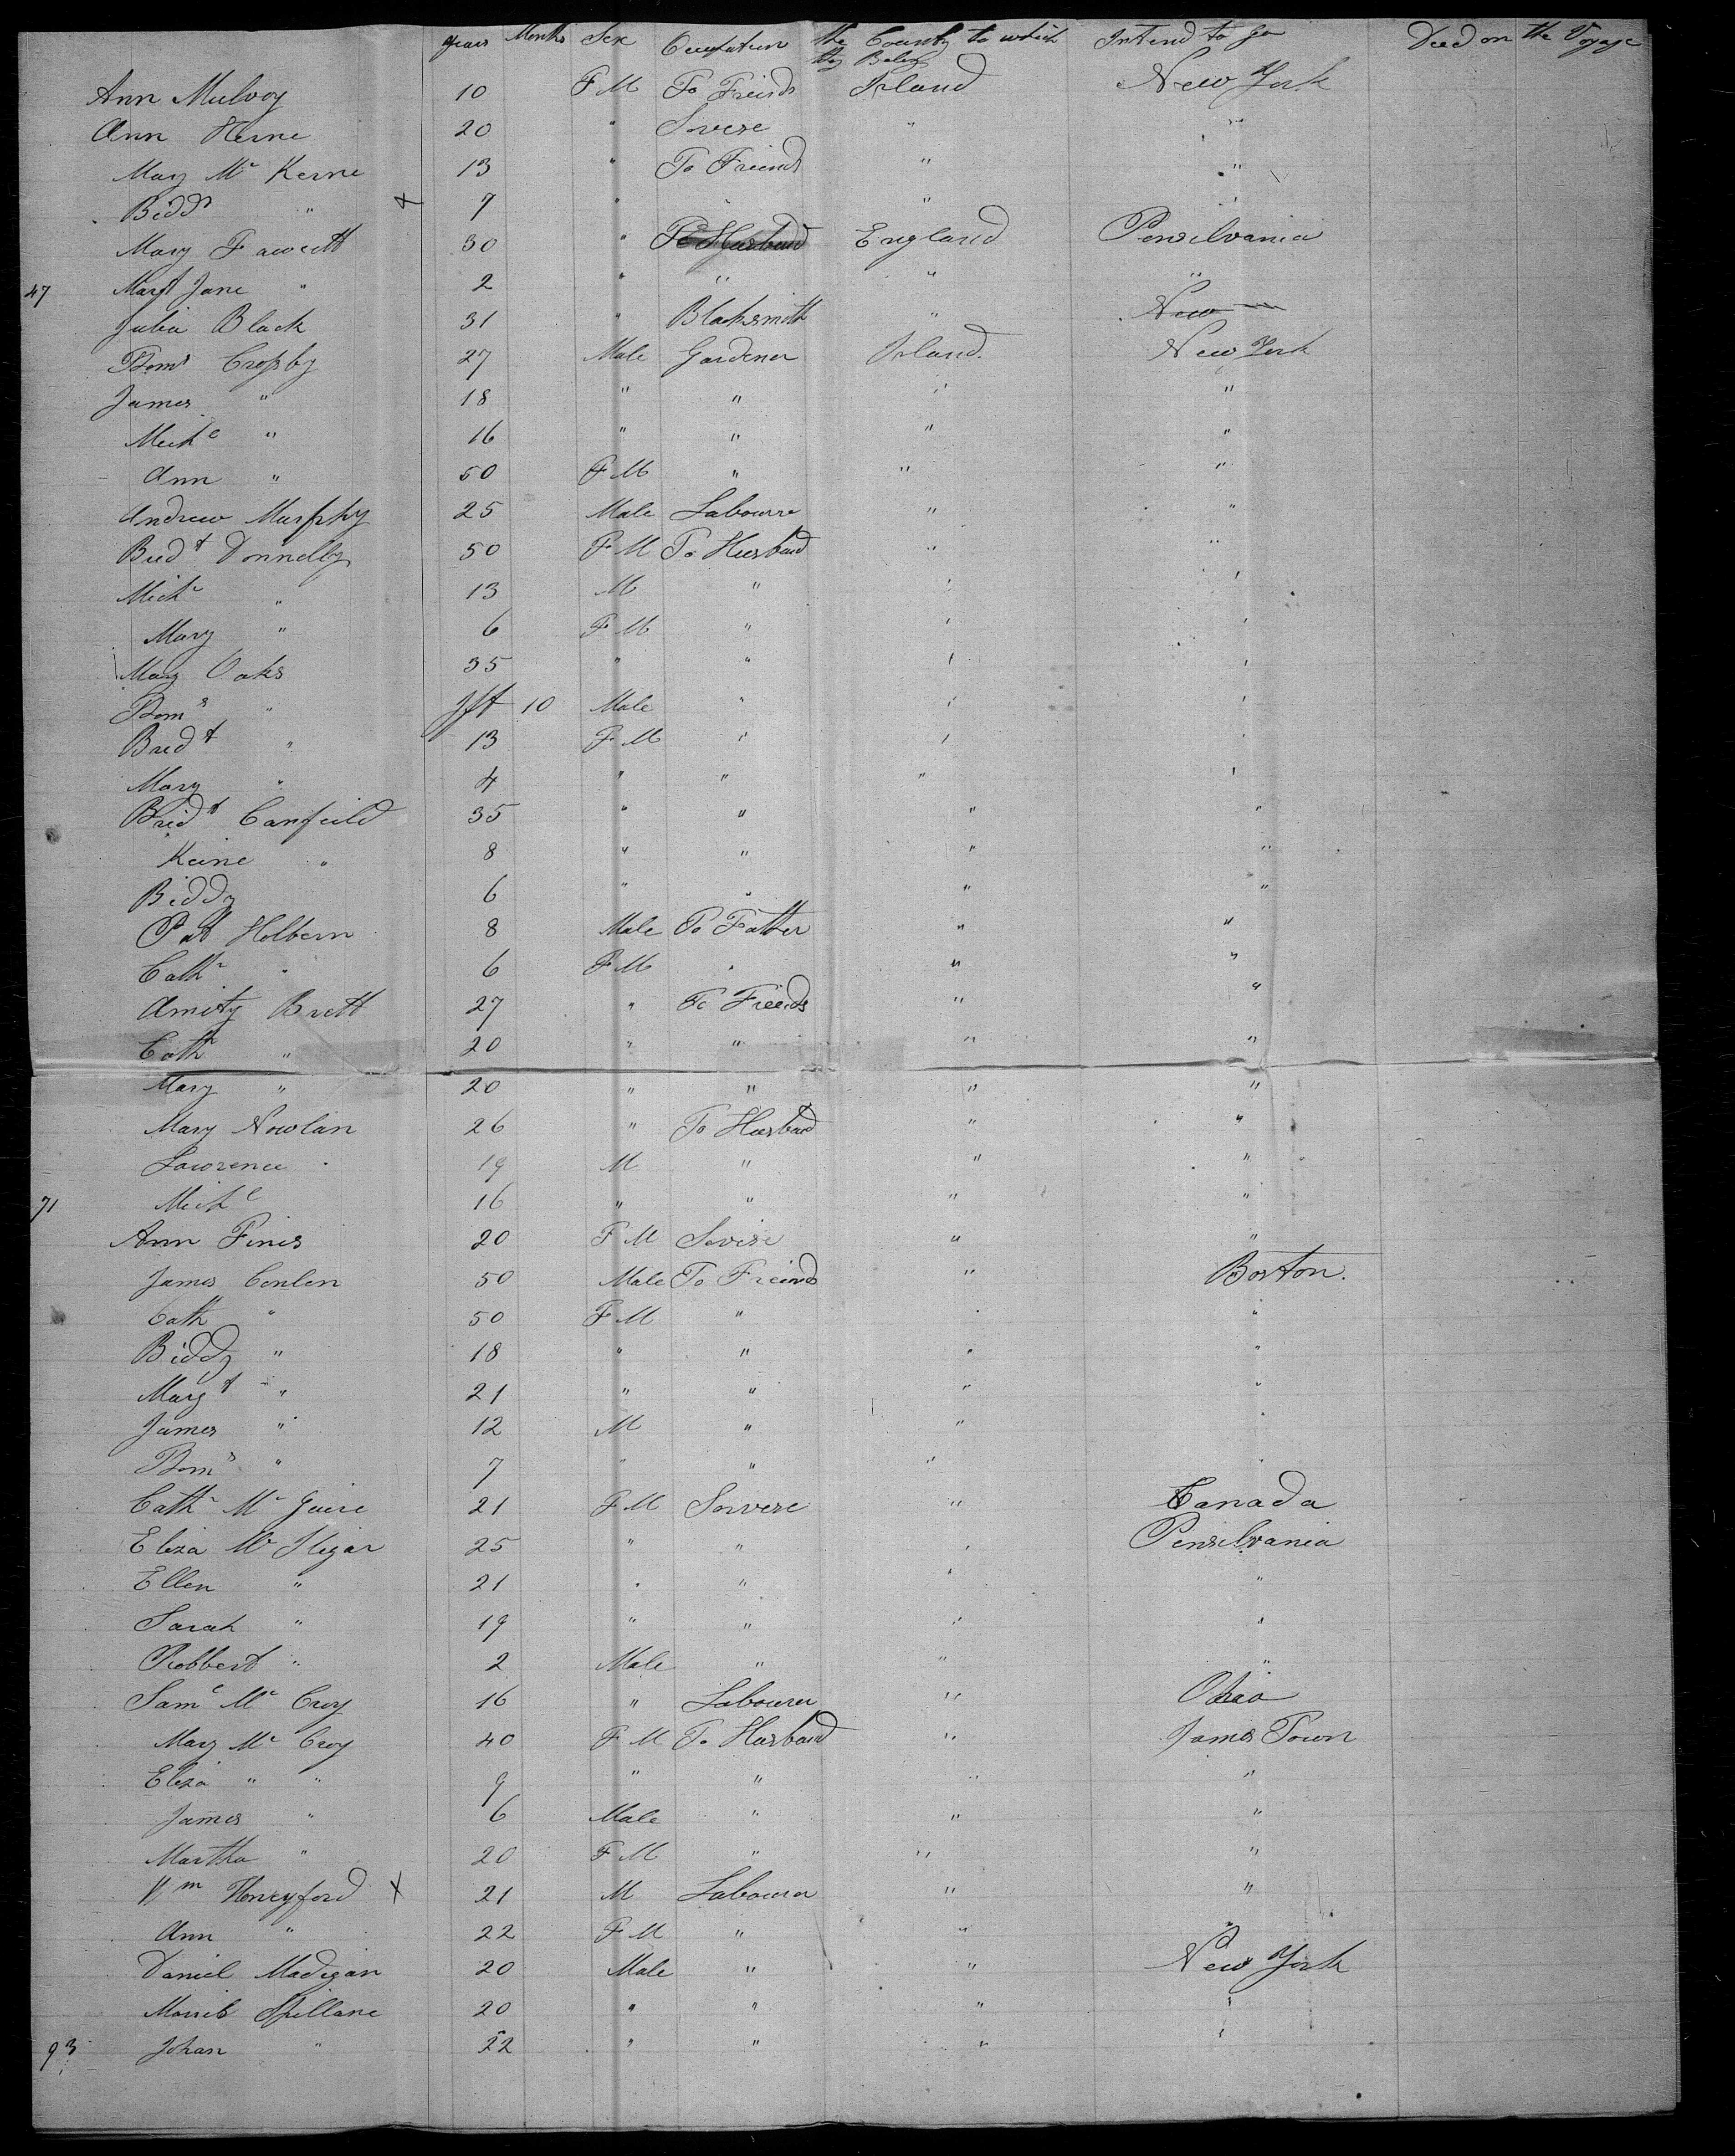 Years Months Sex Occupation the County to which they Belong Intend to go Died on the Voyage
Ann Mulvoy 10 F M To Freinds Irland New York
Ann Herne 20 " Severe " "
Mary Mc Kerne 13 " To Freinds " "
Bidd " x 7 " " " "
Mary Fawcett 30 " To Husband England Pensilvania
47 Margt Jane " 2 " " " "
Julia Black 31 " Blaksmith " New
Thoms Crossby 27 Male Gardener Irland New York
James " 18 " " " "
Michl " 16 " " " "
Ann " 50 F M " " "
Andrew Murphy 25 Male Labourre " "
Bridt Donnelly 50 F M To Husband " "
Michl " 13 M " " "
Mary " 6 F M " " "
Mary Oaks 35 " " " "
Thoms " Ift 10 Male " " "
Bridt " 13 F M " " "
Mary " 4 " " " "
Bridt Canfeild 35 " " " "
Keine " 8 " " " "
Biddy 6 " " " "
Pat Holbern 8 Male To Father " "
Cathr " 6 F M " " "
Amity Brett 27 " To Freinds " "
Cath " 20 " " " "
Mary " 20 " " " "
Mary Nowlan 26 " To Husband " "
Lawrence " 19 M " " "
71 Michl 16 " " " "
Ann Finis 20 F M Sevise " "
James Conlen 50 Male To Freinds " Boston.
Cath " 50 F M " " "
Biddy " 18 " " " "
Margt " 21 " " " "
James " 12 M " " "
Thoms " 7 " " " "
Cathr Mc Guire 21 F M Servese " Canada
Eliza Mc Higar 25 " " " Pensilvania
Ellen " 21 " " " "
Sarah " 19 " " " "
Robbert " 2 Male " " "
Saml Mc Croy 16 " Labourer " Ohio
Mary Mc Croy 40 F M To Husband " James Town
Eliza " " 9 " " " "
James " 6 Male " " "
Martha " 20 F M " " "
Wm Honeyford x 21 M Labourer " "
Ann " 22 F M " " "
Daniel Madigan 20 Male " " New York
Morris Spillane 20 " " " "
93 Johan " 22 " " " "